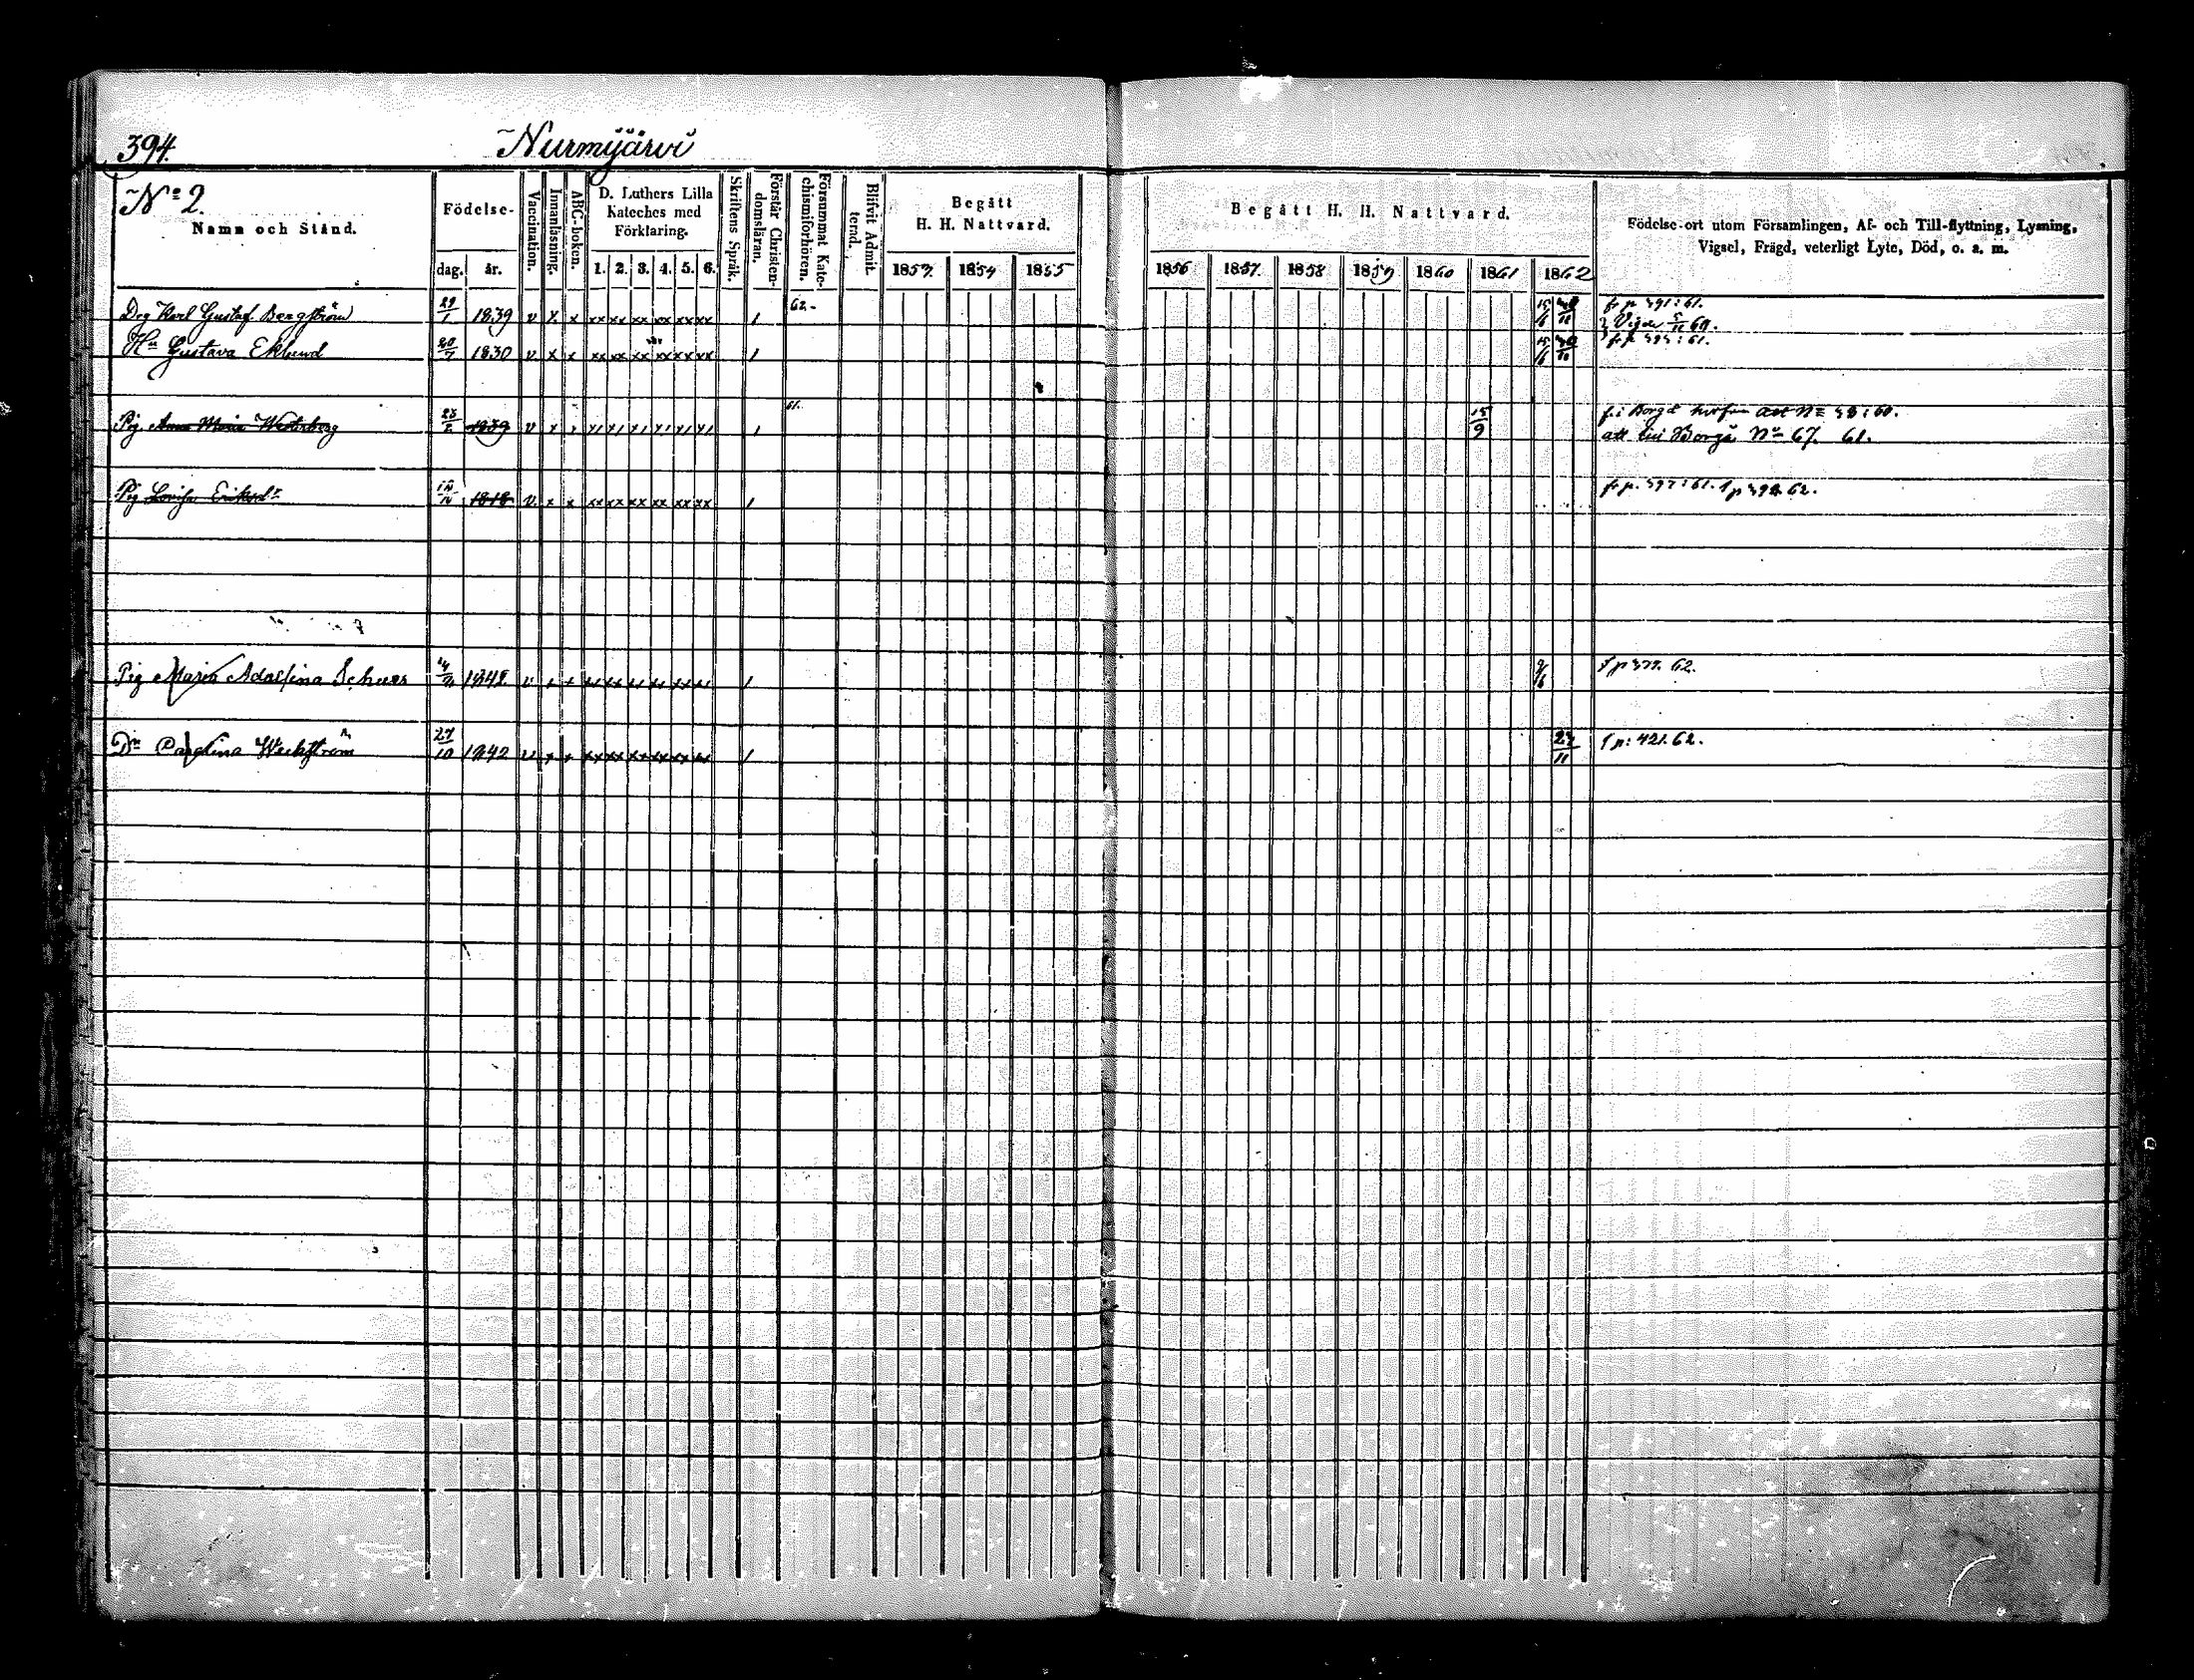 394.
Nurmijärvi
No 2.
Namn och Stånd.
Födelse-
dag. år.
Vaccination.
Innanläsning.
ABC-boken.
D. Luthers Lilla
Kateches med
Förklaring.
1. 2. 3. 4. 5. 6.
Skriftens Språk.
Förstår Christen-
domsläran.
Försummat Kate-
chismiförhören.
Blifvit Admit-
terad.
Begått
H. H. Nattvard.
1853. 1854 1855
Begått H. H. Nattvard.
1856 1857 1858 1859 1860 1861 1862
Födelse-ort utom Församlingen, Af- och Till-flyttning, Lysning,
Vigsel, Frägd, veterligt Lyte, Död, o. a. m.
Drg Karl Gustaf Bergström 29/1 1839 v x x xx xx xx xx xx xx 1 62.- fr p 391:61.
Hu Gustava Eklund 20/7 1830 v x x xx xx xx xx xx xx 1
Pig. Anna Maria Westerberg 1839 v x 61. 15/9 f. i Borgå
att till Borgå No 67. 61.
Pig Lovisa 1818 v. x x xx xx xx xx xx xx 1 fr p. 397:61.
Pig Maria Adolfina 1 9/6 62.
Dn Carolina Weckström 27/10 1842 v x x xx xx xx xx xx xx 1 27/11 f p: 421. 62.